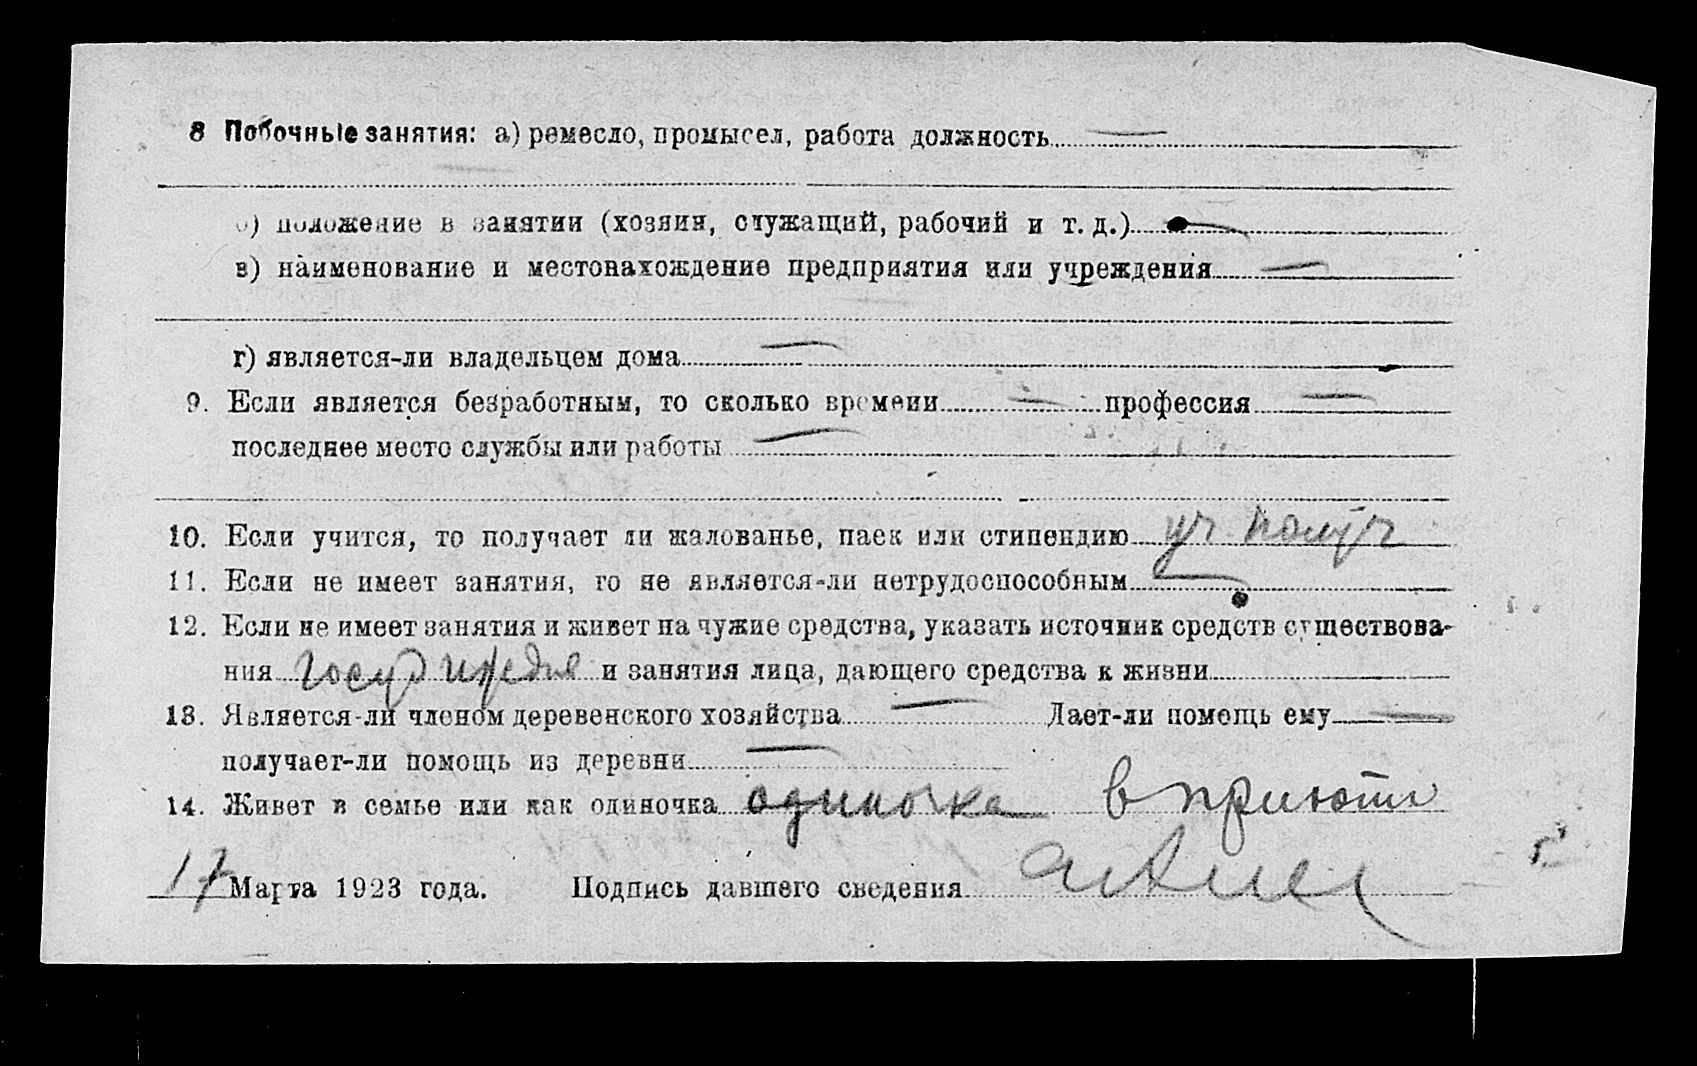 8 Побочные занятия: а) ремесло, промысел, работа должность — 
б) положение в занятии (хозяин, служащий, рабочий и т. д.) —
в) наименование и местонахождение предприятия или учреждения —
г) является-ли владельцем дома —
9. Если является безработным, то сколько времени — профессия —
последнее место службы или работы —
10. Если учится, то получает ли жалованье, паек или стипендию уч получ
11. Если не имеет занятия, то не является-ли нетрудоспособным —
12. Если не имеет занятия и живет на чужие средства, указать источник средств существова-
ния госуд иждив и занятия лица, дающего средства к жизни
13. Является-ли членом деревенского хозяйства — Дает-ли помощь ему —
получает-ли помощь из деревни —
14. Живет в семье или как одиночка одиночка в приюти
17 Марта 1923 года. Подпись давшего сведения